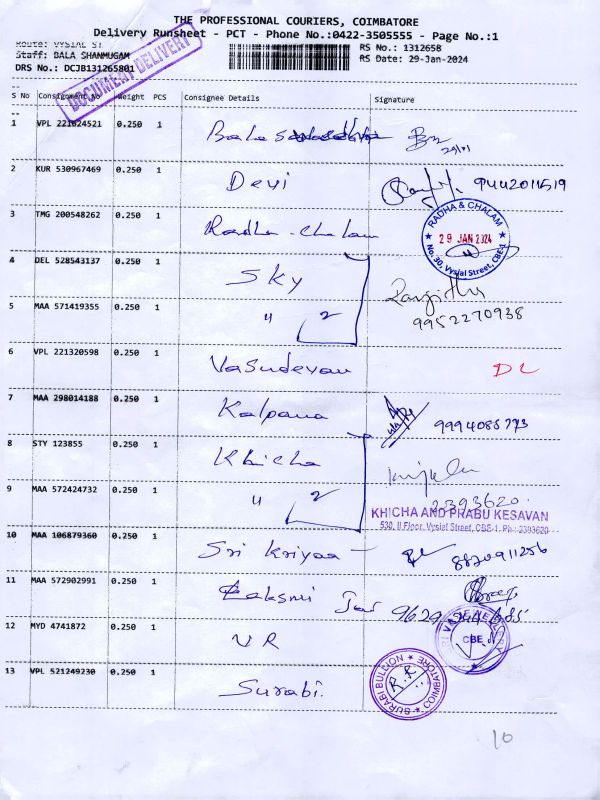 THE PROFESSIONAL COURIERS, COIMBATORE
Delivery Runsheet - PCT - Phone No.:0422-3505555 - Page No.:1
Route: VYSIAL ST
RS No.: 1312658
Staff: BALA SHANMUGAM
RS Date: 29-Jan-2024
DRS No.: DCJB131265801
DOCUMENT DELIVERY
S No Consignment No Weight PCS Consignee Details Signature
1 VPL 221624521 0.250 1 Bala
29/01
2 KUR 530967469 0.250 1 Devi 9442011519
3 TMG 200548262 0.250 1 Radha - Chalam
RADHA & CHALAM
29 JAN 2024
No. 30, Vysial Street, CBE-1
4 DEL 528543137 0.250 1 Sky Ranjitha
5 MAA 571419355 0.250 1 " 2 9952270938
6 VPL 221320598 0.250 1 Vasudevan DL
7 MAA 298014188 0.250 1 Kalpana 9994085773
8 STY 123855 0.250 1 Khicha
9 MAA 572424732 0.250 1 " 2 2393620
KHICHA AND PRABU KESAVAN
530, II Floor, Vysial Street, CBE-1. Ph.: 2393620
10 MAA 106879360 0.250 1 Sri Kriyaa - 8820911256
11 MAA 572902991 0.250 1 Lakshmi
12 MYD 4741872 0.250 1 VR
CBE
13 VPL 521249230 0.250 1 Surabi.
SURABI BULLION
R.R
COIMBATORE
10